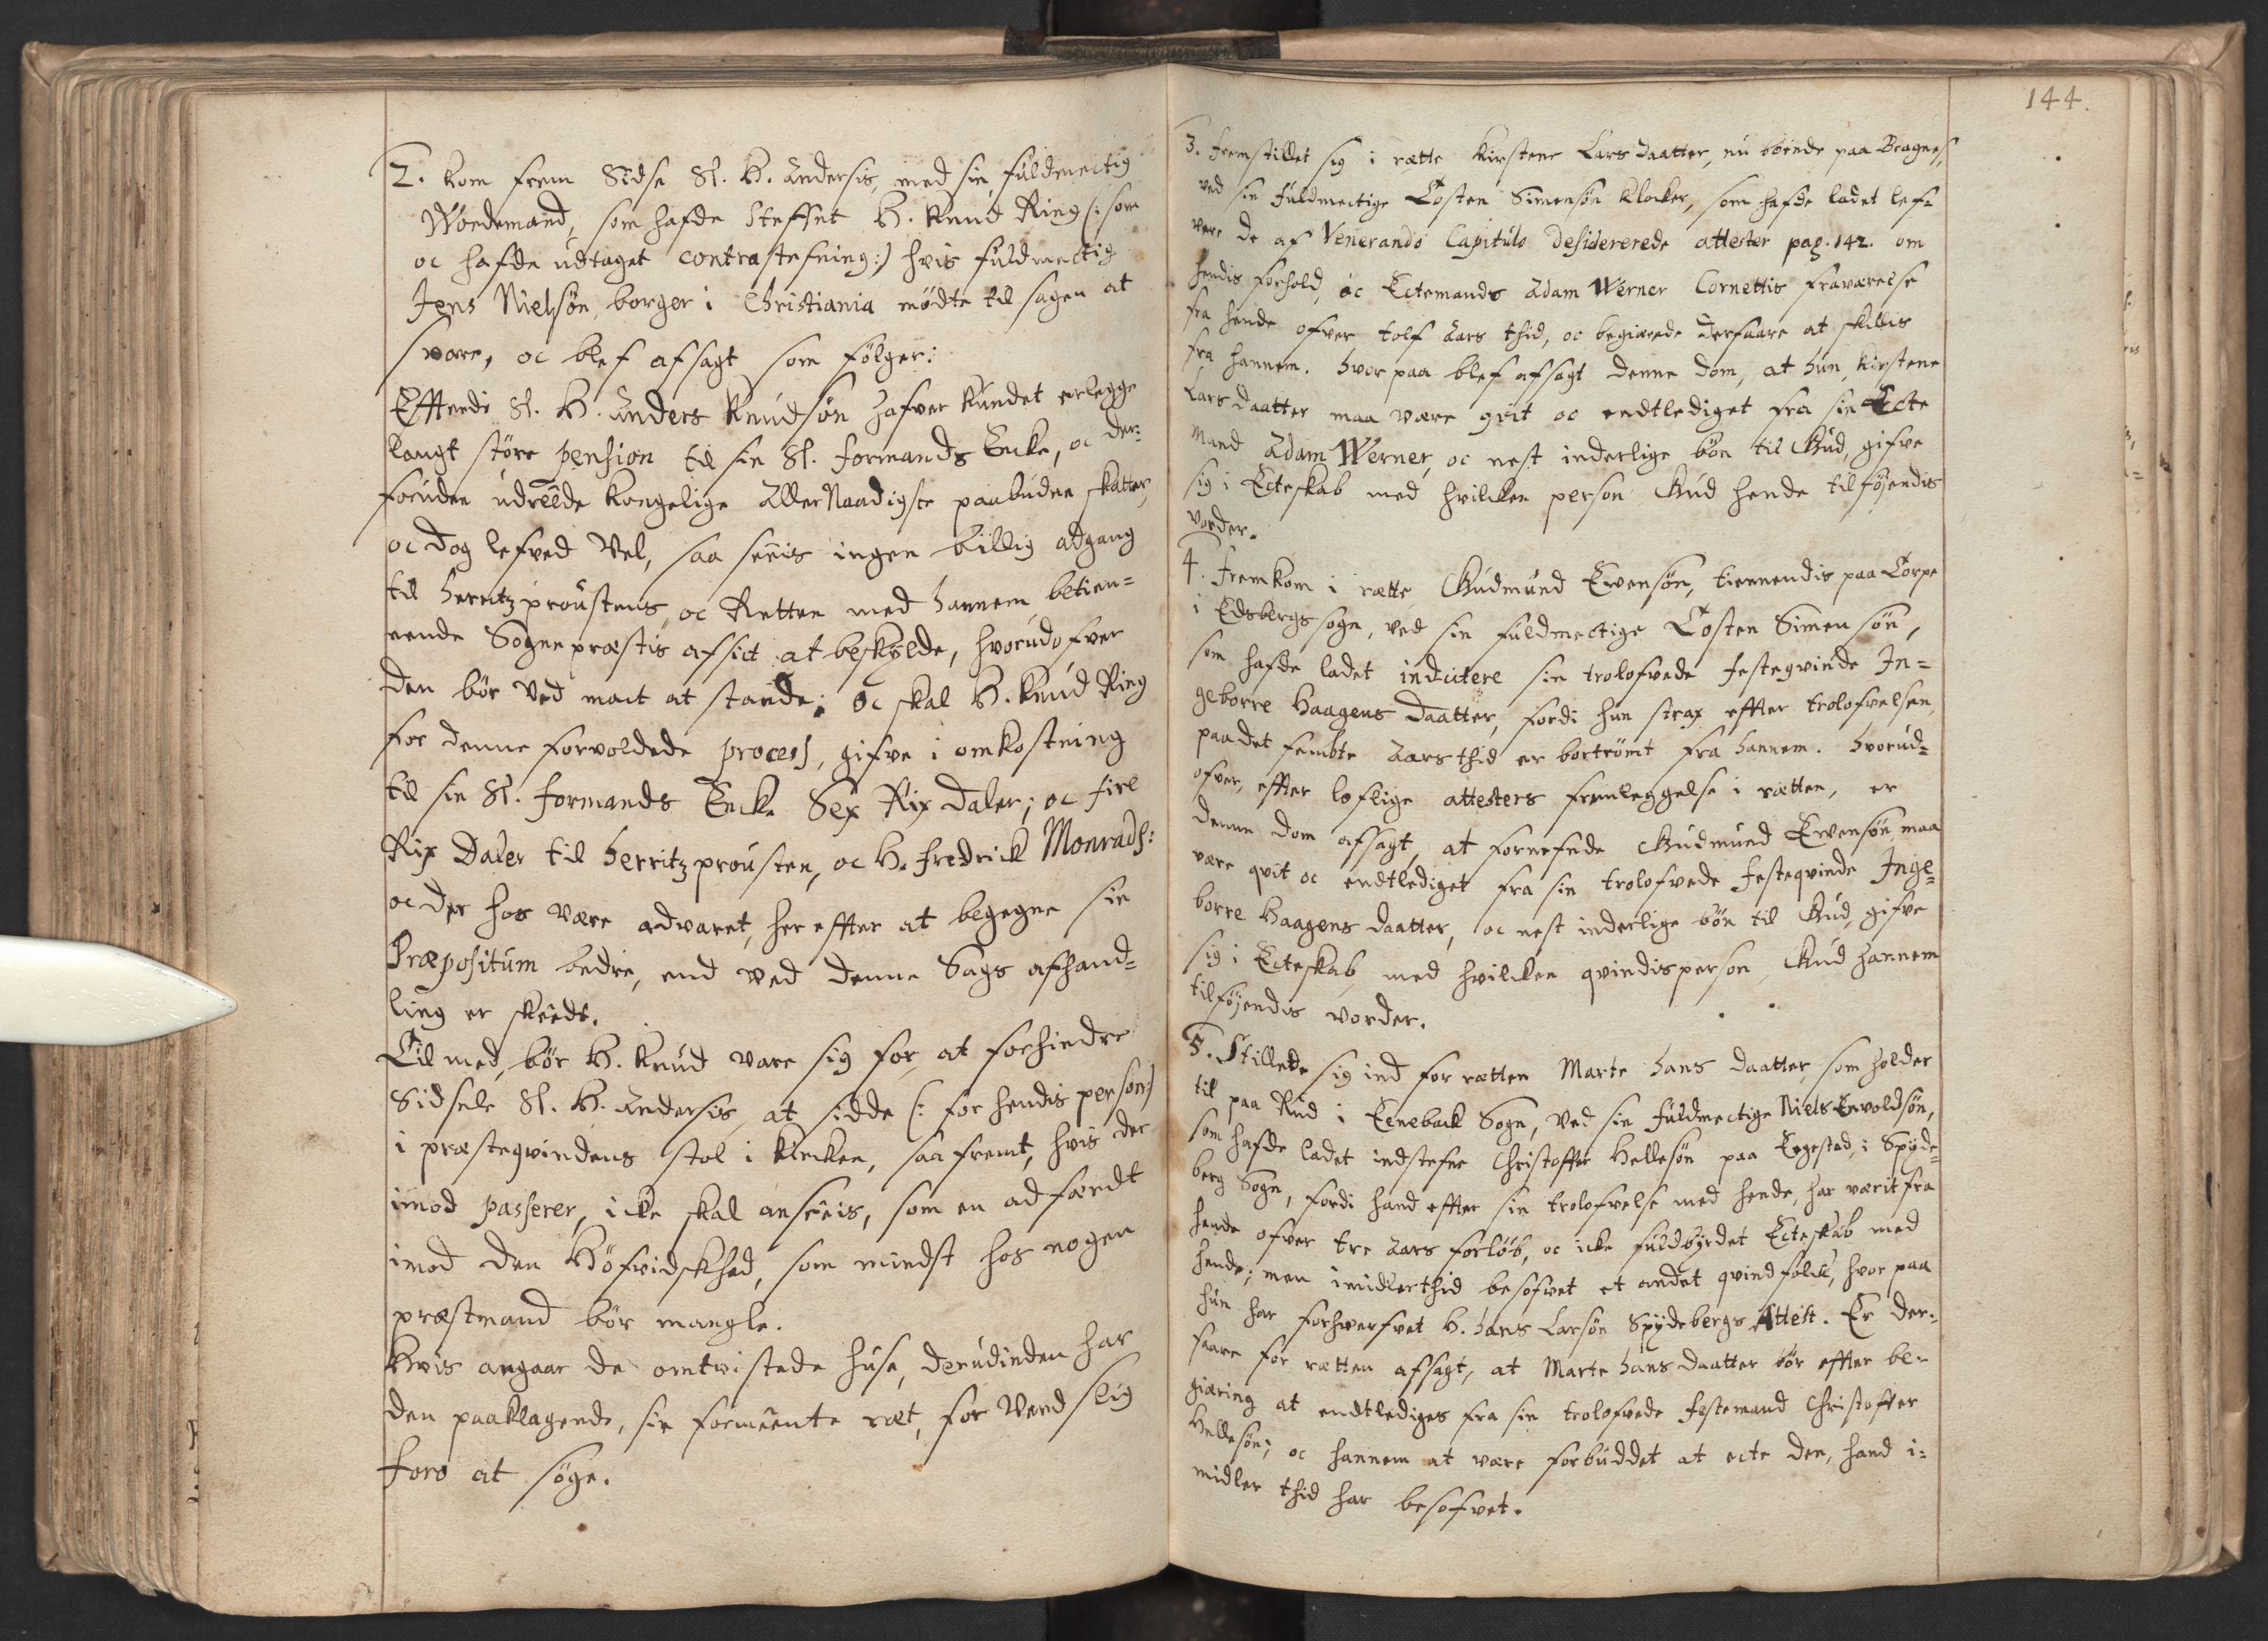 2. Kom frem Sidse Sl. H. Andersis, med sin fuldmectig
Woedemand, som hafde steffnt H. Knud Ring (: som
oc hafde udtaget contrastefning:) hvis fuldmectig
Jens Nielsøn, borger i Christiania mødte til sagen at
svare, oc blef afsagt som følger:
Efterdi Sl. H. Anders Knudsøn hafver kundet erlegge
langt større pension til sin Sl. formands Encke, oc der:
foruden udreede kongelige AllerNaadigste paabudne skatter,
oc dog lefved vel, saa seeis ingen billig adgang
til Herritzproustens, oc Retten med hannem betien=
nende Sogneprestis afsict at beskylde, hvorudofver
den bør ved mact at stande; oc skal H. Knud Ring
for denne forvoldede process, gifve i omkostning
til sin Sl. formands Encke Sex Rix Daler; oc fire
Rix Daler til Herritzprousten, oc H. Fredrick Monrads:
oc der hos være advaret, her effter at begegne sin
Præpositum bedre, end ved denne Sags afhand=
ling er skeedt.
Til med, bør H. Knud vare sig for, at forhindre
Sidsele Sl. H. Andersis, at sidde (: for hendis person:)
i præsteqvindens stol i kircken, saa fremt, hvis der
imod passerer, icke skal anseeis, som en adfærdt
imod den Høfvidskhed, som mindst hos nogen
præstmand bør mangle.
Hvis angaar de omtvistede huse, derudinden har
den paaklagende, sin formeente ræt, for Verdslig
foro at søge.
144.
3. Fremstillet sig i rætte Kirstene Lars daatter, nu boende paa Bragnes,
ved sin fuldmectige Tosten Simensøn Klocker, som hafde ladet lef=
vere de af Venerando Capitulo desidererede attester pag. 142. om
hendis forhold, oc Ectemands Adam Werner Cornettis fraværelse
fra hende ofver tolf Aars thid, oc begiærede derfaare at skillis
fra hannem. Hvor paa blef afsagt denne dom, at hun, Kirstene
Lars daatter maa være qvit oc endtlediget fra sin Ecte
Mand Adam Werner, oc nest inderlige bøn til Gud, gifve
sig i Ecteskab med hvilcken person Gud hende tilføjendis
vorder.
4. Fremkom i rætte Gudmund Evensøn, tiennendis paa Torpe
i Edsbergs sogn, ved sin fuldmectige Tosten Simensøn,
som hafde ladet indcitere sin trolofvede festeqvinde In=
geborre Haagens daatter, fordi hun strax effter trolofvelsen,
paa det fembte Aars thid er bortrømt fra hannem. Hvorud=
ofver, effter loflige attesters fremleggelse i rætten, er
denne dom afsagt, at fornefnde Gudmund Evensøn maa
være qvit oc endtlediget fra sin trolofvede festeqvinde Inge=
borre Haagens daatter, oc nest inderlige bøn til Gud, gifve
sig i Ecteskab, med hvilcken qvindisperson Gud hannem
tilføjendis vorder.
5. Stillede sig ind for rætten Marte Hans daatter, som holder
til paa Rud i Eneback Sogn, ved sin fuldmectige Niels Envoldsøn,
som hafde ladet indstefne Christoffer Hellesøn paa Egestad, i Spyde=
berg Sogn, fordi hand effter sin trolofvelse med hende, har værit fra
hende ofver tre Aars forløb, oc icke fuldbyrdet Ecteskab med
hende; men imidlerthid besofvet et andet qvindfolck, hvor paa
hun har forhverfvet H. Hans Larsøn Spydebergs Attest. Er der:
faare for rætten afsagt, at Marte Hans daatter bør effter be=
giæring at endtlediges fra sin trolofvede festemand Christoffer
Hellesøn; oc hannem at være forbuddet at ecte den, hand i=
midler thid har besofvet.